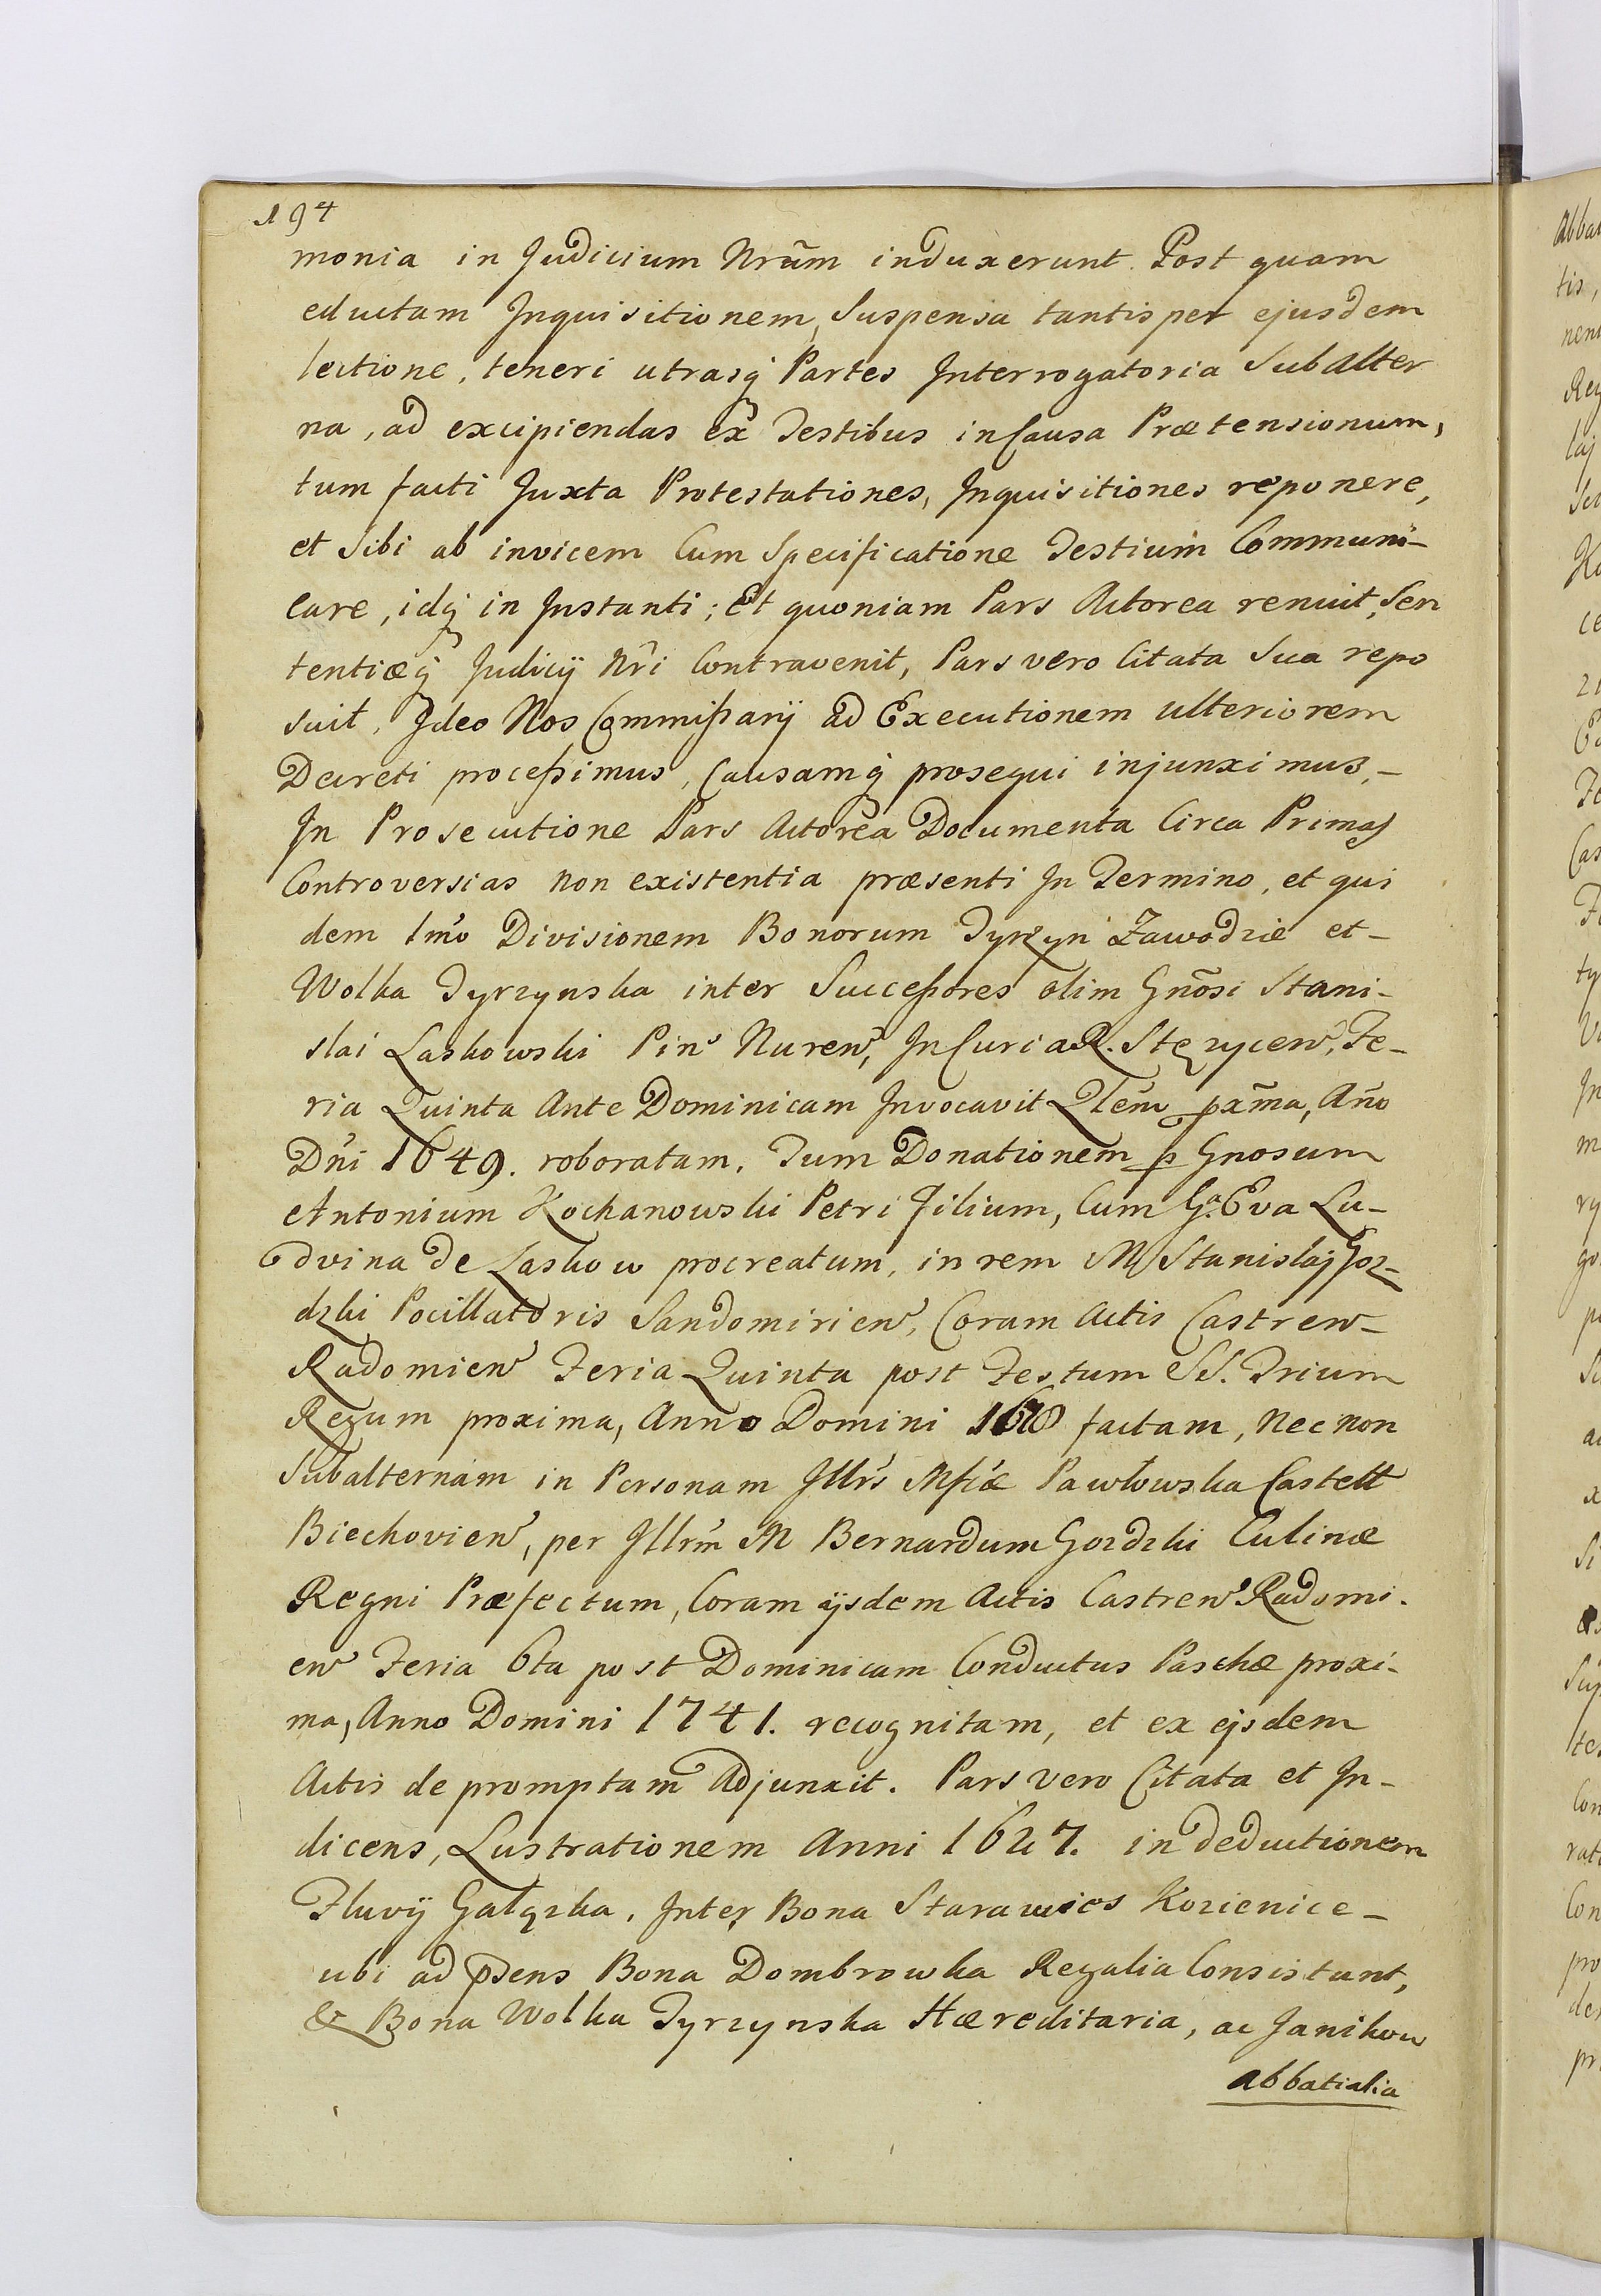 194
monia in Judicium Nrũm induxerunt. Post quam
eductam Inquisitionem, Suspensa tantisper ejusdem
lectione, teneri utrasq̃ Partes Interrogatoria Subalter
na, ad excipiendas ex Testibus in Causa Prætensionum,
tum facti Juxta Protestationes, Inquisitiones reponere,
et Sibi ab invicem Cum Specificatione Testium Communi-
care, idq̃ in Instanti; Et quoniam Pars Actorea renuit, Sen
tentiæq̃ Judicij Nri Contravenit, Pars vero Citata Sua repo
suit, Ideo Nos Commißarij ad Executionem ulteriorem
Decreti proceßimus, Causamq̃ prosequi injunximus,-
In Prosecutione Pars Actorea Documenta Circa Primas
Controversias non existentia præsenti In Termino, et qui
dem 1mo Divisionem Bonorum Tyrzyn Zawodzie et-
Wolka Tyrzynska inter Succeßores olim Gnõsi Stani-
slai Laskowski Pin Nuren, In Curia R. Stęzycen, Fe-
ria Quinta Ante Dominicam Invocavit Qlẽm px̃ma, Año
Dni 1649. roboratam. Tum Donationem p Gnosum
Antonium Kochanowski Petri Filium, Cum G. Eva Lu-
dvina de Laskow procreatum, in rem M Stanislaj Goz-
dzki Pocillatoris Sandomirien, Coram Actis Castren-
Radomien Feria Quinta post Festum SS. Trium
Regum proxima, Anno Domini factam, Nec non
Subalternam in Personam Illris Mficæ Pawłowska Castell
Biechovien, per Illrm M Bernardum Gozdzki Culinæ
Regni Præfectum, Coram ijsdem Actis Castren Radomi-
en Feria 6ta post Dominicam Conductus Paschæ proxi-
ma, Anno Domini 1741. recognitam, et ex ejsdem
Actis depromptam Adjunxit. Pars vero Citata et In-
dicens, Lustrationem Anni 1627. in deductionem
Fluvij Gałązka, Inter Bona Starawies Kozienice-
ubi ad p̃sens Bona Dombrowka Regalia Consistunt,
& Bona Wolka Tyrzynska Hæreditaria, ac Janikow
abbatialia